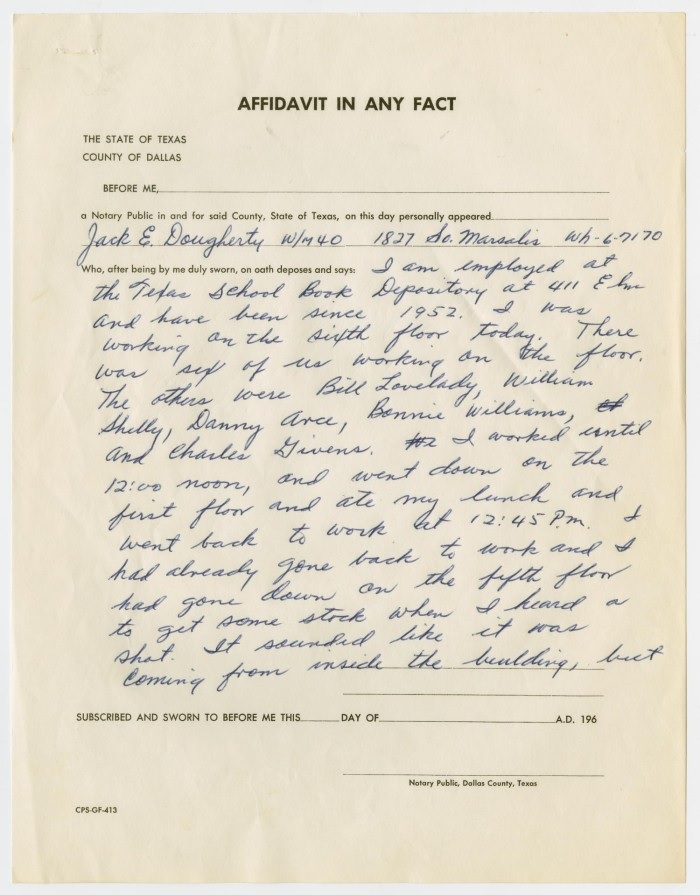 AFFIDAVIT IN ANY FACT
THE STATE OF TEXAS
COUNTY OF DALLAS
BEFORE ME,
a Notary Public in and for said County, State of Texas, on this day personally appeared
Jack E. Dougherty W/M 40 1827 So. Marsalis Wh-6-7170
Who, after being by me duly sworn, on oath deposes and says: I am employed at
the Texas School Book Depository at 411 Elm
and have been since 1952. I was
working on the sixth floor today. There
was six of us working on the floor.
The others were Bill Lovelady, William
Shelly, Danny Arce, Bonnie Williams,
and Charles Givens. I worked until
12:00 noon, and went down on the
first floor and ate my lunch and
went back to work at 12:45 P.m. I
had already gone back to work and I
had gone down on the fifth floor
to get some stock when I heard a
shot. It sounded like it was
coming from inside the building, but
SUBSCRIBED AND SWORN TO BEFORE ME THIS DAY OF A.D. 196
Notary Public, Dallas County, Texas
CPS-GF-413